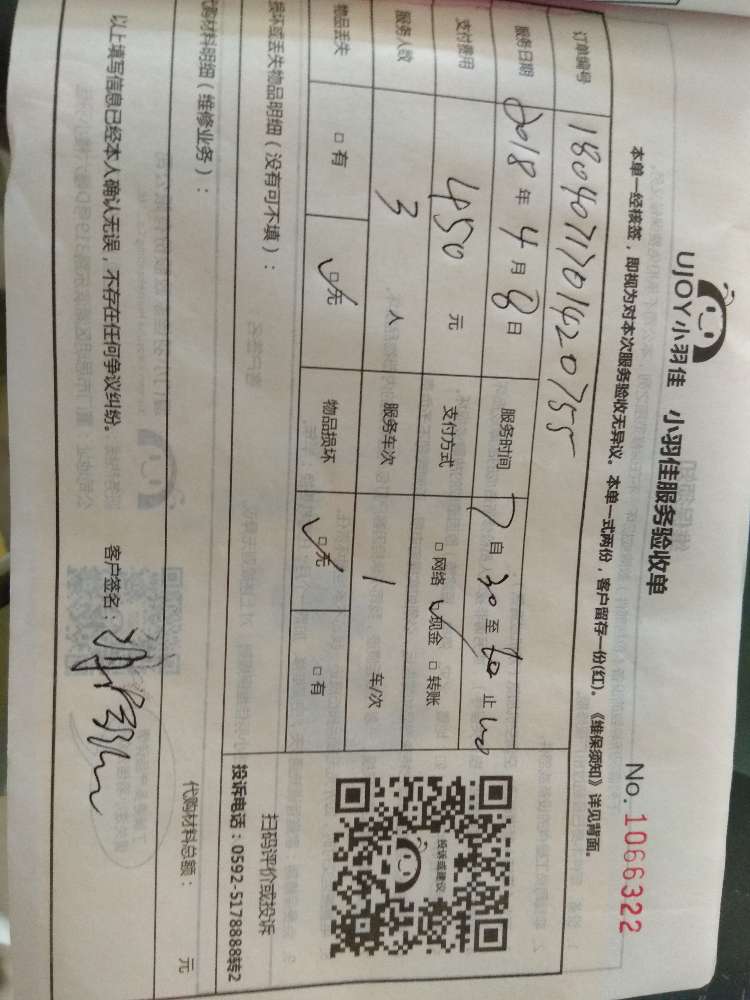 UJOY小羽佳 小羽佳服务验收单
No. 1066322
本单一经核签，即视为对本次服务验收无异议。本单一式两份，客户留存一份(红)。《维保须知》详见背面。
订单编号 180407170142075 5
服务日期 2018 年 4 月 8 日 服务时间 7 自 30 至 止
支付费用 450 元 支付方式 □ 网络 ☑ 现金 □ 转账
服务人数 3 人 服务车次 1 车/次
物品丢失 □ 有 ☑ 无 物品损坏 ☑ 无 □ 有
投诉或建议
扫码评价或投诉
投诉电话：0592-5178888转2
损坏或丢失物品明细（没有可不填）：
代购材料明细（维修业务）：
代购材料总额： 元
以上填写信息已经本人确认无误，不存在任何争议纠纷。 客户签名：